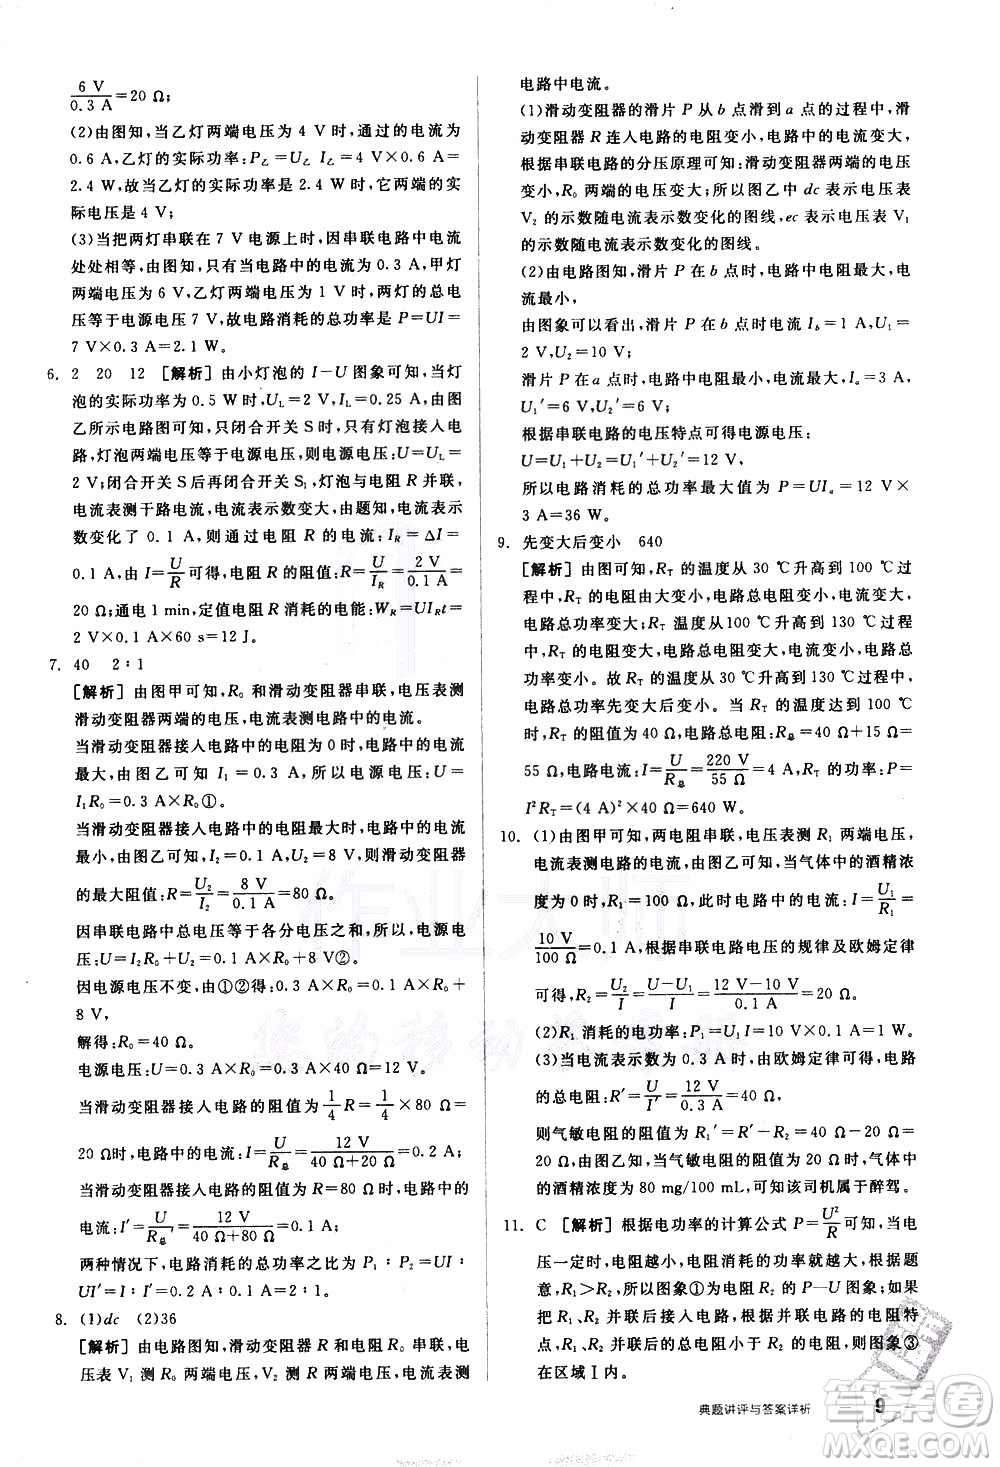 6 V/0.3 A=20 Ω;
(2)由图知,当乙灯两端电压为 4 V 时,通过的电流为
0.6 A,乙灯的实际功率:P乙=U乙 I乙=4 V×0.6 A=
2.4 W,故当乙灯的实际功率是 2.4 W 时,它两端的实
际电压是 4 V;
(3)当把两灯串联在 7 V 电源上时,因串联电路中电流
处处相等,由图知,只有当电路中的电流为 0.3 A,甲灯
两端电压为 6 V,乙灯两端电压为 1 V 时,两灯的总电
压等于电源电压 7 V,故电路消耗的总功率 P=UI=
7 V×0.3 A=2.1 W。
6. 2 20 12 [解析] 由小灯泡的 I-U 图象可知,当灯
泡的实际功率为 0.5 W 时,UL=2 V,IL=0.25 A,由图
乙所示电路图可知,只闭合开关 S 时,只有灯泡接入电
路,灯泡两端电压等于电源电压,则电源电压:U=UL=
2 V;闭合开关 S 后再闭合开关 S1,灯泡与电阻 R 并联,
电流表测干路电流,电流表示数变大,由题知,电流表示
数变化了 0.1 A,则通过电阻 R 的电流:IR=ΔI=
0.1 A,由 I=U/R可得,电阻 R 的阻值:R=U/IR=2 V/0.1 A=
20 Ω;通电 1 min,定值电阻 R 消耗的电能:WR=UIRt=
2 V×0.1 A×60 s=12 J。
7. 40 2∶1
[解析] 由图甲可知,R0 和滑动变阻器串联,电压表测
滑动变阻器两端的电压,电流表测电路中的电流。
当滑动变阻器接入电路中的电阻为 0 时,电路中的电流
最大,由图乙可知 I1=0.3 A,则电源电压:U=
I1R0=0.3 A×R0①。
当滑动变阻器接入电路中的电阻最大时,电路中的电流
最小,由图乙可知,I2=0.1 A,U2=8 V,则滑动变阻器
的最大阻值:R=U2/I2=8 V/0.1 A=80 Ω。
因串联电路中总电压等于各分电压之和,则电源电
压:U=I2R0+U2=0.1 A×R0+8 V②。
因电源电压不变,由①②得:0.3 A×R0=0.1 A×R0+
8 V,
解得:R0=40 Ω。
电源电压:U=0.3 A×R0=0.3 A×40 Ω=12 V。
当滑动变阻器接入电路的阻值为1/4R=1/4×80 Ω=
20 Ω时,电路中的电流:I=U/R总=12 V/40 Ω+20 Ω=0.2 A,
当滑动变阻器接入电路的阻值为 R=80 Ω,电路中的
电流:I′=U/R总′=12 V/40 Ω+80 Ω=0.1 A,
两种情况下,电路消耗的总功率之比为 P1∶P2=UI∶
UI′=I∶I′=0.2 A∶0.1 A=2∶1。
8. (1)dc (2)36
[解析] 由电路图知,滑动变阻器 R 和电阻 R0 串联,电
压表 V1 测 R 两端电压,V2 测 R0 两端电压,电流表测
电路中电流。
(1)滑动变阻器的滑片 P 从 b 点滑到 a 点的过程中,滑
动变阻器 R 连入电路的电阻变小,电路中的电流变大,
根据串联电路的分压原理可知:滑动变阻器两端的电压
变小,R0 两端的电压变大;所以图乙中 dc 表示电压表
V2 的示数随电流表示数变化的图线,ec 表示电压表 V1
的示数随电流表示数变化的图线。
(2)由电路图知,滑片 P 在 b 点时,电路中电阻最大,电
流最小,
由图象可以看出,滑片 P 在 b 点时电流 Ib=1 A,U1=
2 V,U2=10 V;
滑片 P 在 a 点时,电路中电阻最小,电流最大,Ia=3 A,
U1′=6 V,U2′=6 V,
根据串联电路的电压特点可得电源电压:
U=U1+U2=U1′+U2′=12 V,
所以电路消耗的总功率最大值为 P=UIa=12 V×
3 A=36 W。
9. 先变大后变小 640
[解析] 由图可知,RT 的温度从 30 ℃升高到 100 ℃
过程中,其电阻是由大变小,电路总电阻变小,电路电流变大,
电路总功率变大;RT 温度从 100 ℃升高到 130 ℃过
程中,其电阻是由小变大,电路总电阻变大,电路电流变
小,电路总功率变小。故 RT 从 30 ℃升高到 130 ℃,
电路总功率先变大后变小。当 RT 的温度为 130 ℃
时,RT 的阻值为 40 Ω,电路总电阻:R总=40 Ω+15 Ω=
55 Ω,电路电流:I=U/R总=220 V/55 Ω=4 A,RT 的功率:P=
I²RT=(4 A)²×40 Ω=640 W。
10. (1)由图甲可知,两电阻串联,电压表测 R1 两端电压,
电流表测电路的电流。由图乙可知,当气体中的酒精浓
度为 0 时,R1=100 Ω,此时电路中的电流:I=U1/R1=
10 V/100 Ω=0.1 A,根据串联电路电压的规律及欧姆定律
可得,R2=U2/I=U-U1/I=12 V-10 V/0.1 A=20 Ω。
(2)R1 消耗的电功率:P1=U1I=10 V×0.1 A=1 W。
(3)当电流表示数为 0.3 A 时,由欧姆定律可得,电路
的总电阻:R′=U/I′=12 V/0.3 A=40 Ω,
则气敏电阻的阻值:R1′=R′-R2=40 Ω-20 Ω=
20 Ω,由图乙知,当气敏电阻的阻值为 20 Ω,气体中
的酒精浓度为 80 mg/100 mL,可知该司机属于醉驾。
11. C [解析] 根据电功率的计算公式 P=U²/R可知,当电
压一定时,电阻越小,电阻消耗的电功率就越大。根据题
意,R1>R2,所以图象①为电阻 R2 的 P—U 图象;如果
把 R1、R2 并联后接入电路,并联电路的电阻具有的特点
知,R1、R2 并联后的总电阻小于 R2 的电阻,则图象③
在区域Ⅰ内。
典题讲评与答案详析 9
作业大师
答案圈
MXQE.COM